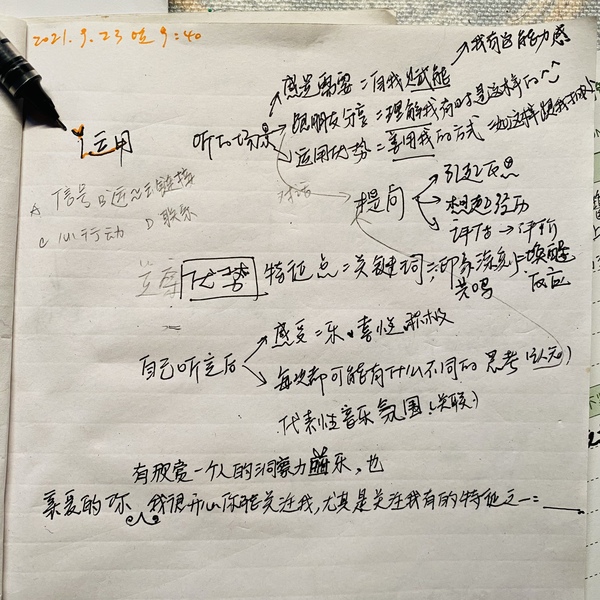 2021.9.23 9:40
→我有自己能力感
感觉需要=自我赋能
运用
听的场景
跟朋友分享=理解我有时是这样的^^
运用优势=善用我的方式
对话
提问
引起反思
想起经历
评估→评价
A 信号 B 链接
C 心行动 D 联系
优势 特征点=关键词=印象深刻=唤醒
共鸣 反应
自己听之后
感受=乐、喜悦 积极
每次都可能有什么不同的思考(认知)
代表性音乐氛围(关联)
有欣赏一个人的洞察力 音乐,也
亲爱的你 我很开心你能关注我,尤其是关注我有的特征之一:____